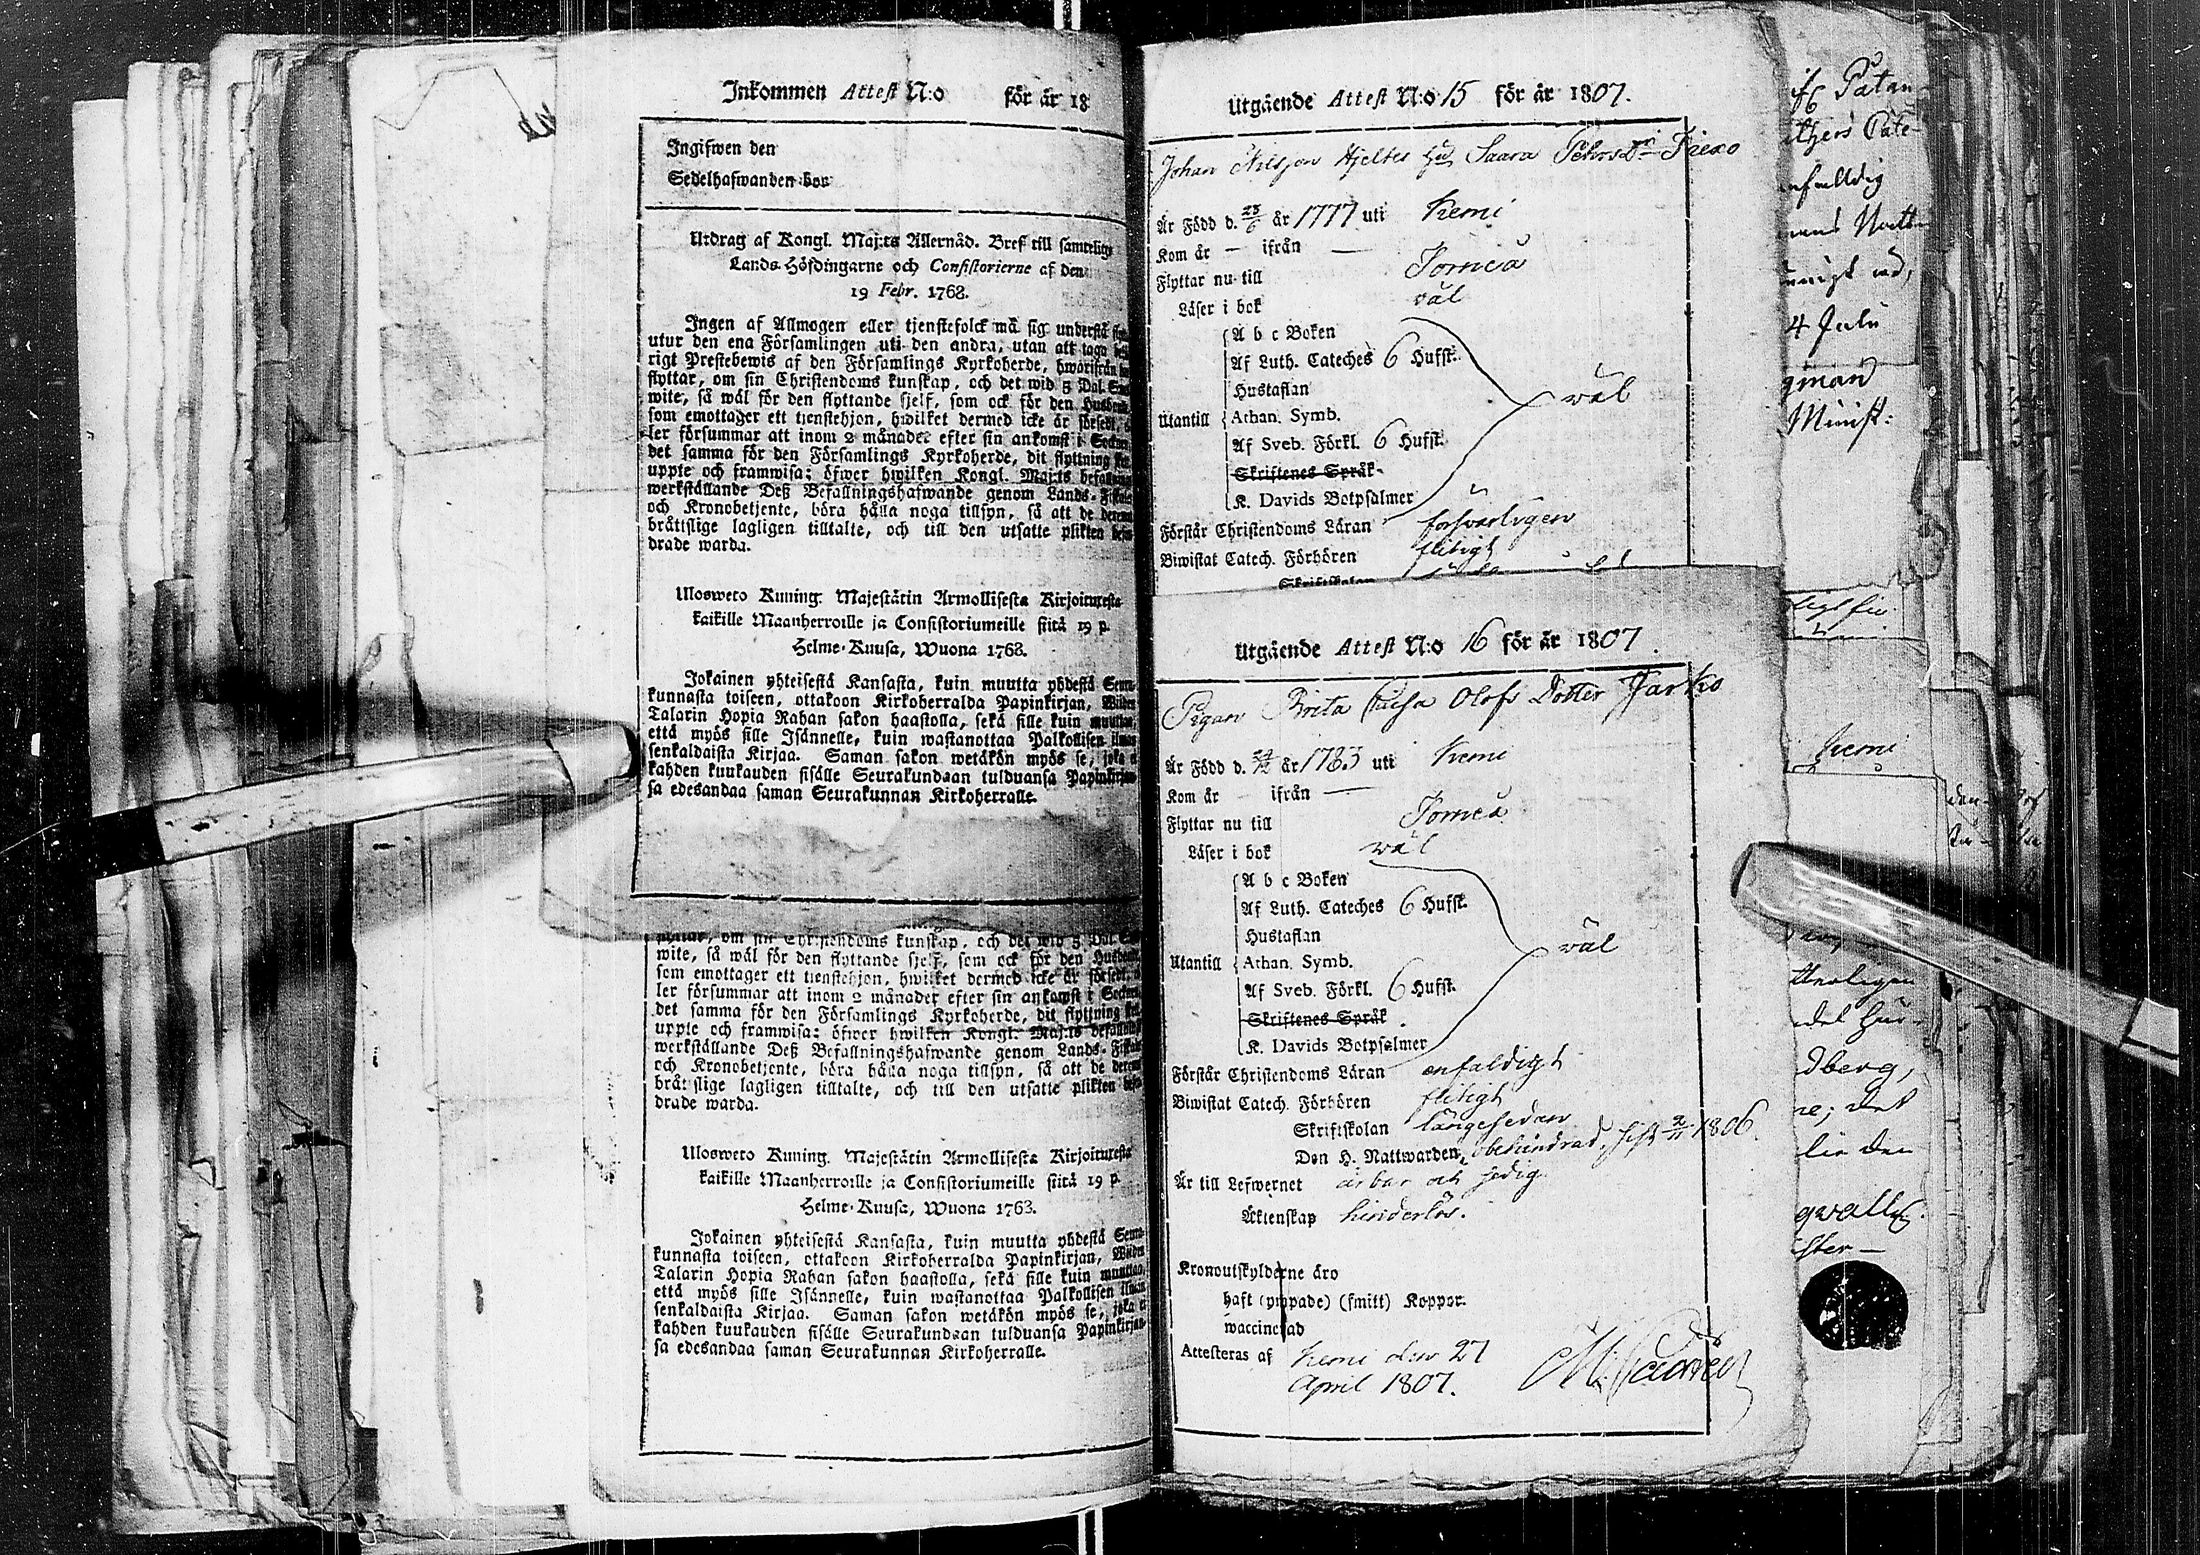 Inkommen Attest N:o för år 18
Ingifwen den
Sedelhafwanden bor
Utdrag af Kongl. Maj:ts Allernåd. Bref till samtelige
Lands-Höfdingarne och Consistorierne af den
19 Febr. 1768.
Ingen af Allmogen eller tjenstefolck må sig understå
utur den ena Församlingen uti den andra, utan att taga
rigt Prestebewis af den Församlings Kyrkoherde, hwarifrån
flyttar, om sin Christendoms kunskap, och det wid 5 Dal.
wite, så wäl för den flyttande sjelf, som ock för den Husbond
som emottager ett tienstehjon, hwilket dermed icke är försedt,
ler försummar att inom 2 månader efter sin ankomst i
det samma för den Församlings Kyrkoherde, dit flyttning
uppte och framwisa; öfwer hwilken Kongl. Maj:ts befallning
werkställande Deß Befallningshafwande genom Lands-Fiskale
och Kronobetjente, böra hålla noga tillsyn, så att de
bråttslige lagligen tilltalte, och till den utsatte plikten
drade warda.
Ulosweto Kuning. Majestätin Armollisesta Kirjoituxesta
kaikille Maanherroille ja Consistoriumeille siitä 19 p.
Helme-Kuusa, Wuona 1768.
Jokainen yhteisestä Kansasta, kuin muutta yhdestä
kunnasta toiseen, ottakoon Kirkoherralda Papinkirjan,
Talarin Hopia Rahan sakon haastolla, sekä sille kuin muuttaa,
että myös sille Isännelle, kuin wastanottaa Palkollisen ilman
senkaldaista Kirjaa. Saman sakon wetäkön myös se, joka
kahden kuukauden sisälle Seurakundaan tulduansa Papinkirjan
sa edesandaa saman Seurakunnan Kirkoherralle.
flyttar, om sin Christendoms kunskap, och det wid 5 Dal.
wite, så wäl för den flyttande sjelf, som ock för den Husbond
som emottager ett tienstehjon, hwilket dermed icke är försedt,
ler försummar att inom 2 månader efter sin ankomst i
det samma för den Församlings Kyrkoherde, dit flyttning
uppte och framwisa; öfwer hwilken Kongl. Maj:ts befallning
werkställande Deß Befallningshafwande genom Lands-Fiskale
och Kronobetjente, böra hålla noga tillsyn, så att de
bråttslige lagligen tilltalte, och till den utsatte plikten
drade warda.
Ulosweto Kuning. Majestätin Armollisesta Kirjoituxesta
kaikille Maanherroille ja Consistoriumeille siitä 19 p.
Helme-Kuusa, Wuona 1763.
Jokainen yhteisestä Kansasta, kuin muutta yhdestä
kunnasta toiseen, ottakoon Kirkoherralda Papinkirjan,
Talarin Hopia Rahan sakon haastolla, sekä sille kuin muuttaa,
että myös sille Isännelle, kuin wastanottaa Palkollisen ilman
senkaldaista Kirjaa. Saman sakon wetäkön myös se, joka
kahden kuukauden sisälle Seurakundaan tulduansa Papinkirjan
sa edesandaa saman Seurakunnan Kirkoherralle.
Utgående Attest N:o 15 för år 1807.
Johan Nilsson Hjeltes Hu Saara PehrsDr
Är Född d. 23/6 år 1777 uti Kemi
Kom år — ifrån —
Flyttar nu till Torneå
Läser i bok väl
A b c Boken
Af Luth. Cateches 6 Hufst.
Hustaflan
Utantill Athan. Symb. väl
Af Sveb. Förkl. 6 Hufst.
Skriftenes Språk
K. Davids Botpsalmer
Förstår Christendoms Läran försvarligen
Biwistat Catech. Förhören flitigt
Skriftskolan
Utgående Attest N:o 16 för år 1807.
Pigan Brita Caisa Olofs Dotter Jarko
Är Född d. år 1783 uti Kemi
Kom år — ifrån —
Flyttar nu till Torneå
Läser i bok väl
A b c Boken
Af Luth. Cateches 6 Hufst.
Hustaflan
Utantill Athan. Symb. väl
Af Sveb. Förkl. 6 Hufst.
Skriftenes Språk
K. Davids Botpsalmer
Förstår Christendoms Läran enfaldigt
Biwistat Catech. Förhören flitigt
Skriftskolan längesedan
Den H. Nattwarden, obehindrad, sist 2/11 1806.
Är till Lefwernet ärbar och sedig
Äktenskap hinderlös.
Kronoutskylderne äro
haft (ympade) (smitt) Koppor.
waccinerad
Attesteras af Kemi den 27
April 1807.
4 Julii
Minist:
Kemi